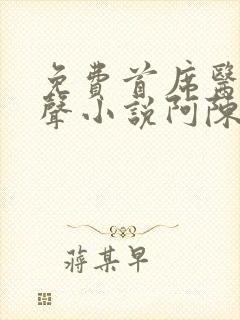 免費首席醫
聲小說阿陳
蔣某早